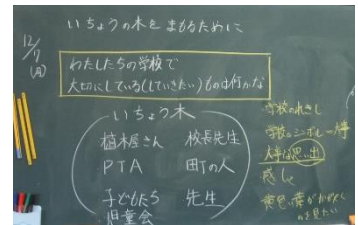 いちょうの木をまもるために
12/17(月)
わたしたちの学校で
大切にしている(していきたい)ものは何かな
いちょう木
植木屋さん 校長先生
PTA 町の人
子どもたち 先生
児童会
学校のれきし
学校のシンボル
大事な思い出
黄色い葉が
見たい